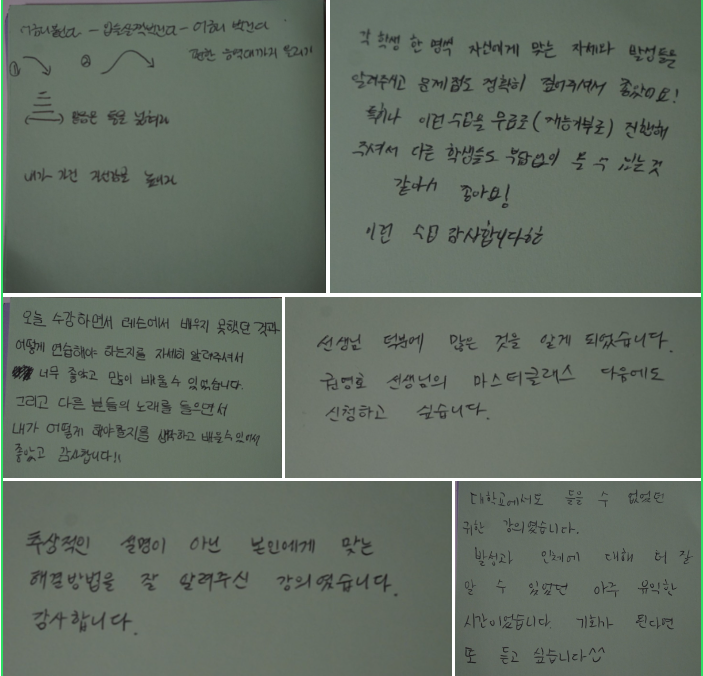 편한 음역대까지 올리기
① ②
발음은 들을 넓혀라
내가 가진
각 학생 한 명씩 자신에게 맞는 자체와 발성들을
알려주시고 문제점도 정확히 짚어주셔서 좋았어요!
특히나 이런 수업을 무료로(재능기부로) 진행해
주셔서 다른 학생들도 부담없이 들 수 있는 것
같아서 좋아요!
이런 수업 감사합니다
오늘 수강하면서 레슨에서 배우지 못했던 것과
어떻게 연습해야 하는지를 자세히 알려주셔서
너무 좋았고 많이 배울 수 있었습니다.
그리고 다른 분들의 노래를 들으면서
내가 어떻게 해야할지를 생각하고 배울수있어서
좋았고 감사합니다!!
선생님 덕분에 많은 것을 알게 되었습니다.
권영호 선생님의 마스터클래스 다음에도
신청하고 싶습니다.
추상적인 설명이 아닌 본인에게 맞는
해결방법을 잘 알려주신 강의였습니다.
감사합니다.
대학교에서도 들을 수 없었던
귀한 강의였습니다.
발성과 인체에 대해 더 잘
알 수 있었던 아주 유익한
시간이었습니다. 기회가 된다면
또 듣고 싶습니다^^